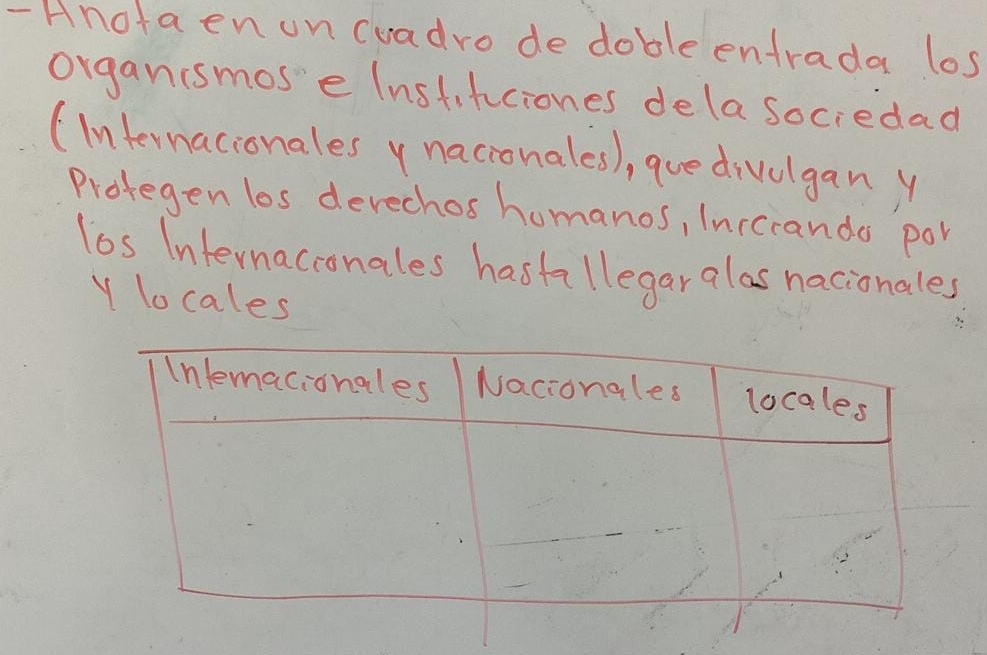 - Anota en un cuadro de doble entrada los
organismos e Instituciones de la sociedad
(Internacionales y nacionales), que divulgan y
Protegen los derechos humanos, Iniciando por
los Internacionales hasta llegar a las nacionales
y locales
Internacionales Nacionales locales